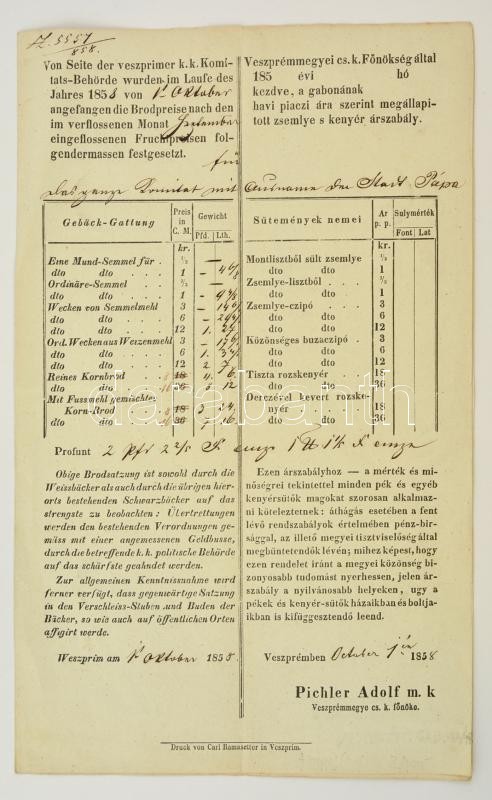 5557/858.
Von Seite der veszprimer k. k. Komi-
tats-Behörde wurden im Laufe des
Jahres 1858 von 1t Oktober
angefangen die Brodpreise nach den
im verflossenen Monat September
eingeflossenen Fruchtpreisen fol-
gendermassen festgesetzt.
für
das ganze Komitat mit Ausname der Stadt Pápa
Veszprémmegyei cs. k. Főnökség által
185 évi hó
kezdve, a gabonának
havi piaczi ára szerint megállapi-
tott zsemlye s kenyér árszabály.
Gebäck-Gattung Preis in C. M. Gewicht
Pfd. Lth.
kr.
Eine Mund-Semmel für . ½ —
dto dto . . . 1 —
Ordinäre-Semmel . . . ½ —
dto dto . . . 1 —
Wecken von Semmelmehl 3 —
dto dto . . . 6 —
dto dto . . . 12 1.
Ord. Wecken aus Weizenmehl 3 —
dto dto . . . 6 1.
dto dto . . . 12 2
Reines Kornbrod . . . 18
dto dto . . . 36 12
Mit Fussmehl gemischtes
Korn-Brod . . . 18 3 24
dto dto . . . 36
Sütemények nemei Ar p. p. Sulymérték
Font Lat
kr.
Montlisztből sült zsemlye ½
dto dto 1
Zsemlye-lisztből . . . ½
dto dto 1
Zsemlye-czipó . . . 3
dto dto 6
dto dto 12
Közönséges buzaczipó . 3
dto dto 6
dto dto 12
Tiszta rozskenyér . . 18
dto dto 36
Derczével kevert rozske-
nyér . . . . 18
dto dto 36
Profunt 2 Pfd
Obige Brodsatzung ist sowohl durch die
Weissbäcker als auch durch die übrigen hier-
orts bestehenden Schwarzbäcker auf das
strengste zu beobachten: Übertrettungen
werden den bestehenden Verordnungen ge-
mäss mit einer angemessenen Geldbusse,
durch die betreffende k. k. politische Behörde
auf das schärfste geahndet werden.
Zur allgemeinen Kenntnisnahme wird
ferner verfügt, dass gegenwärtige Satzung
in den Verschleiss-Stuben und Buden der
Bäcker, so wie auch auf öffentlichen Orten
affigirt werde.
Weszprim am 1t Oktober 1858.
Ezen árszabályhoz — a mérték és mi-
nőségrei tekintettel minden pék és egyéb
kenyérsütők magokat szorosan alkalmaz-
ni köteleztetnek: áthágás esetében a fent
lévő rendszabályok értelmében pénz-bir-
sággal, az illető megyei tisztviselőség által
megbüntetendők lévén; mihez képest, hogy
ezen rendelet iránt a megyei közönség bi-
zonyosabb tudomást nyerhessen, jelen ár-
szabály a nyilvánosabb helyeken, ugy a
pékek és kenyér-sütők házaikban és boltja-
ikban is kifüggesztendő leend.
Veszprémben October 1jén 1858
Pichler Adolf m. k
Veszprémmegye cs. k. főnöke.
Druck von Carl Ramasetter in Veszprim.
darabanth